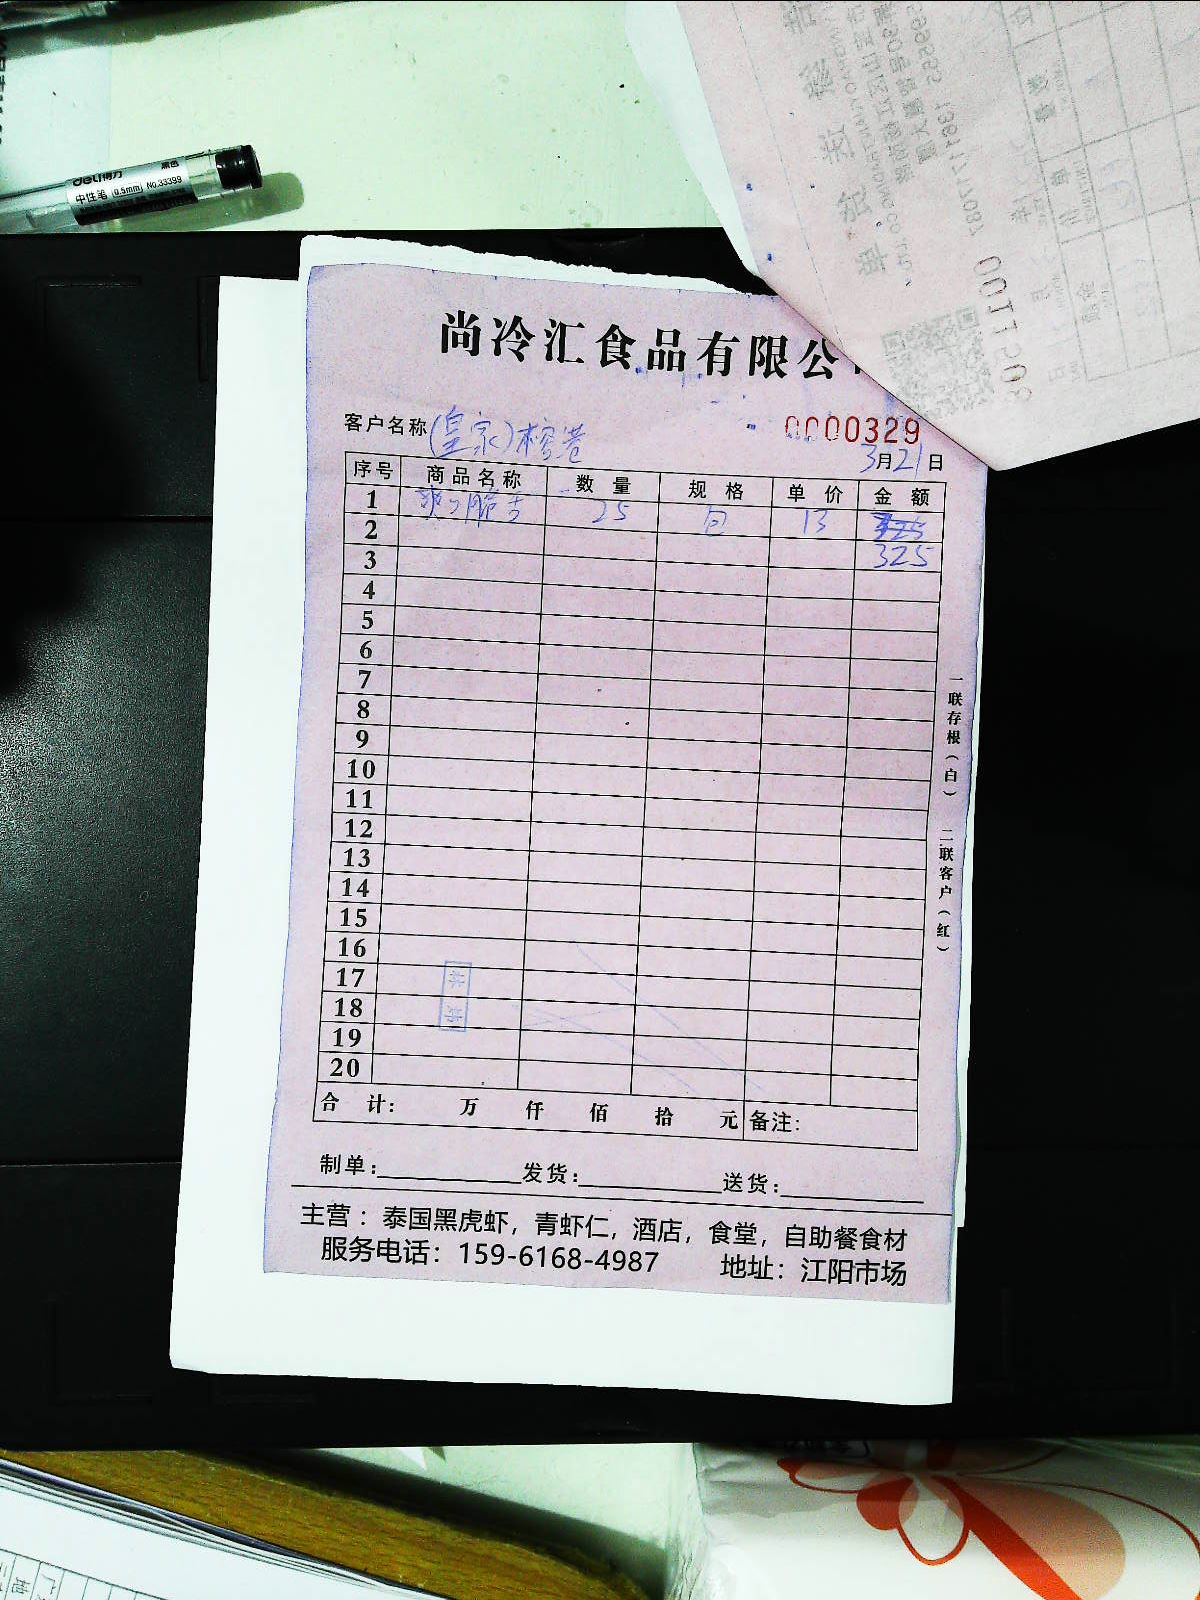 deli得力 黑色
中性笔 0.5mm No.33399
尚冷汇食品有限公
客户名称(皇家)榕巷
0000329
3月21日
序号 商品名称 数量 规格 单价 金额
1 25 包 13 325
2 325
3
4
5
6
7
8
9
10
11
12
13
14
15
16
17
18
19
20
合计: 万 仟 佰 拾 元 备注:
制单: 发货: 送货:
主营：泰国黑虎虾，青虾仁，酒店，食堂，自助餐食材
服务电话：159-6168-4987 地址：江阳市场
一联存根(白) 二联客户(红)